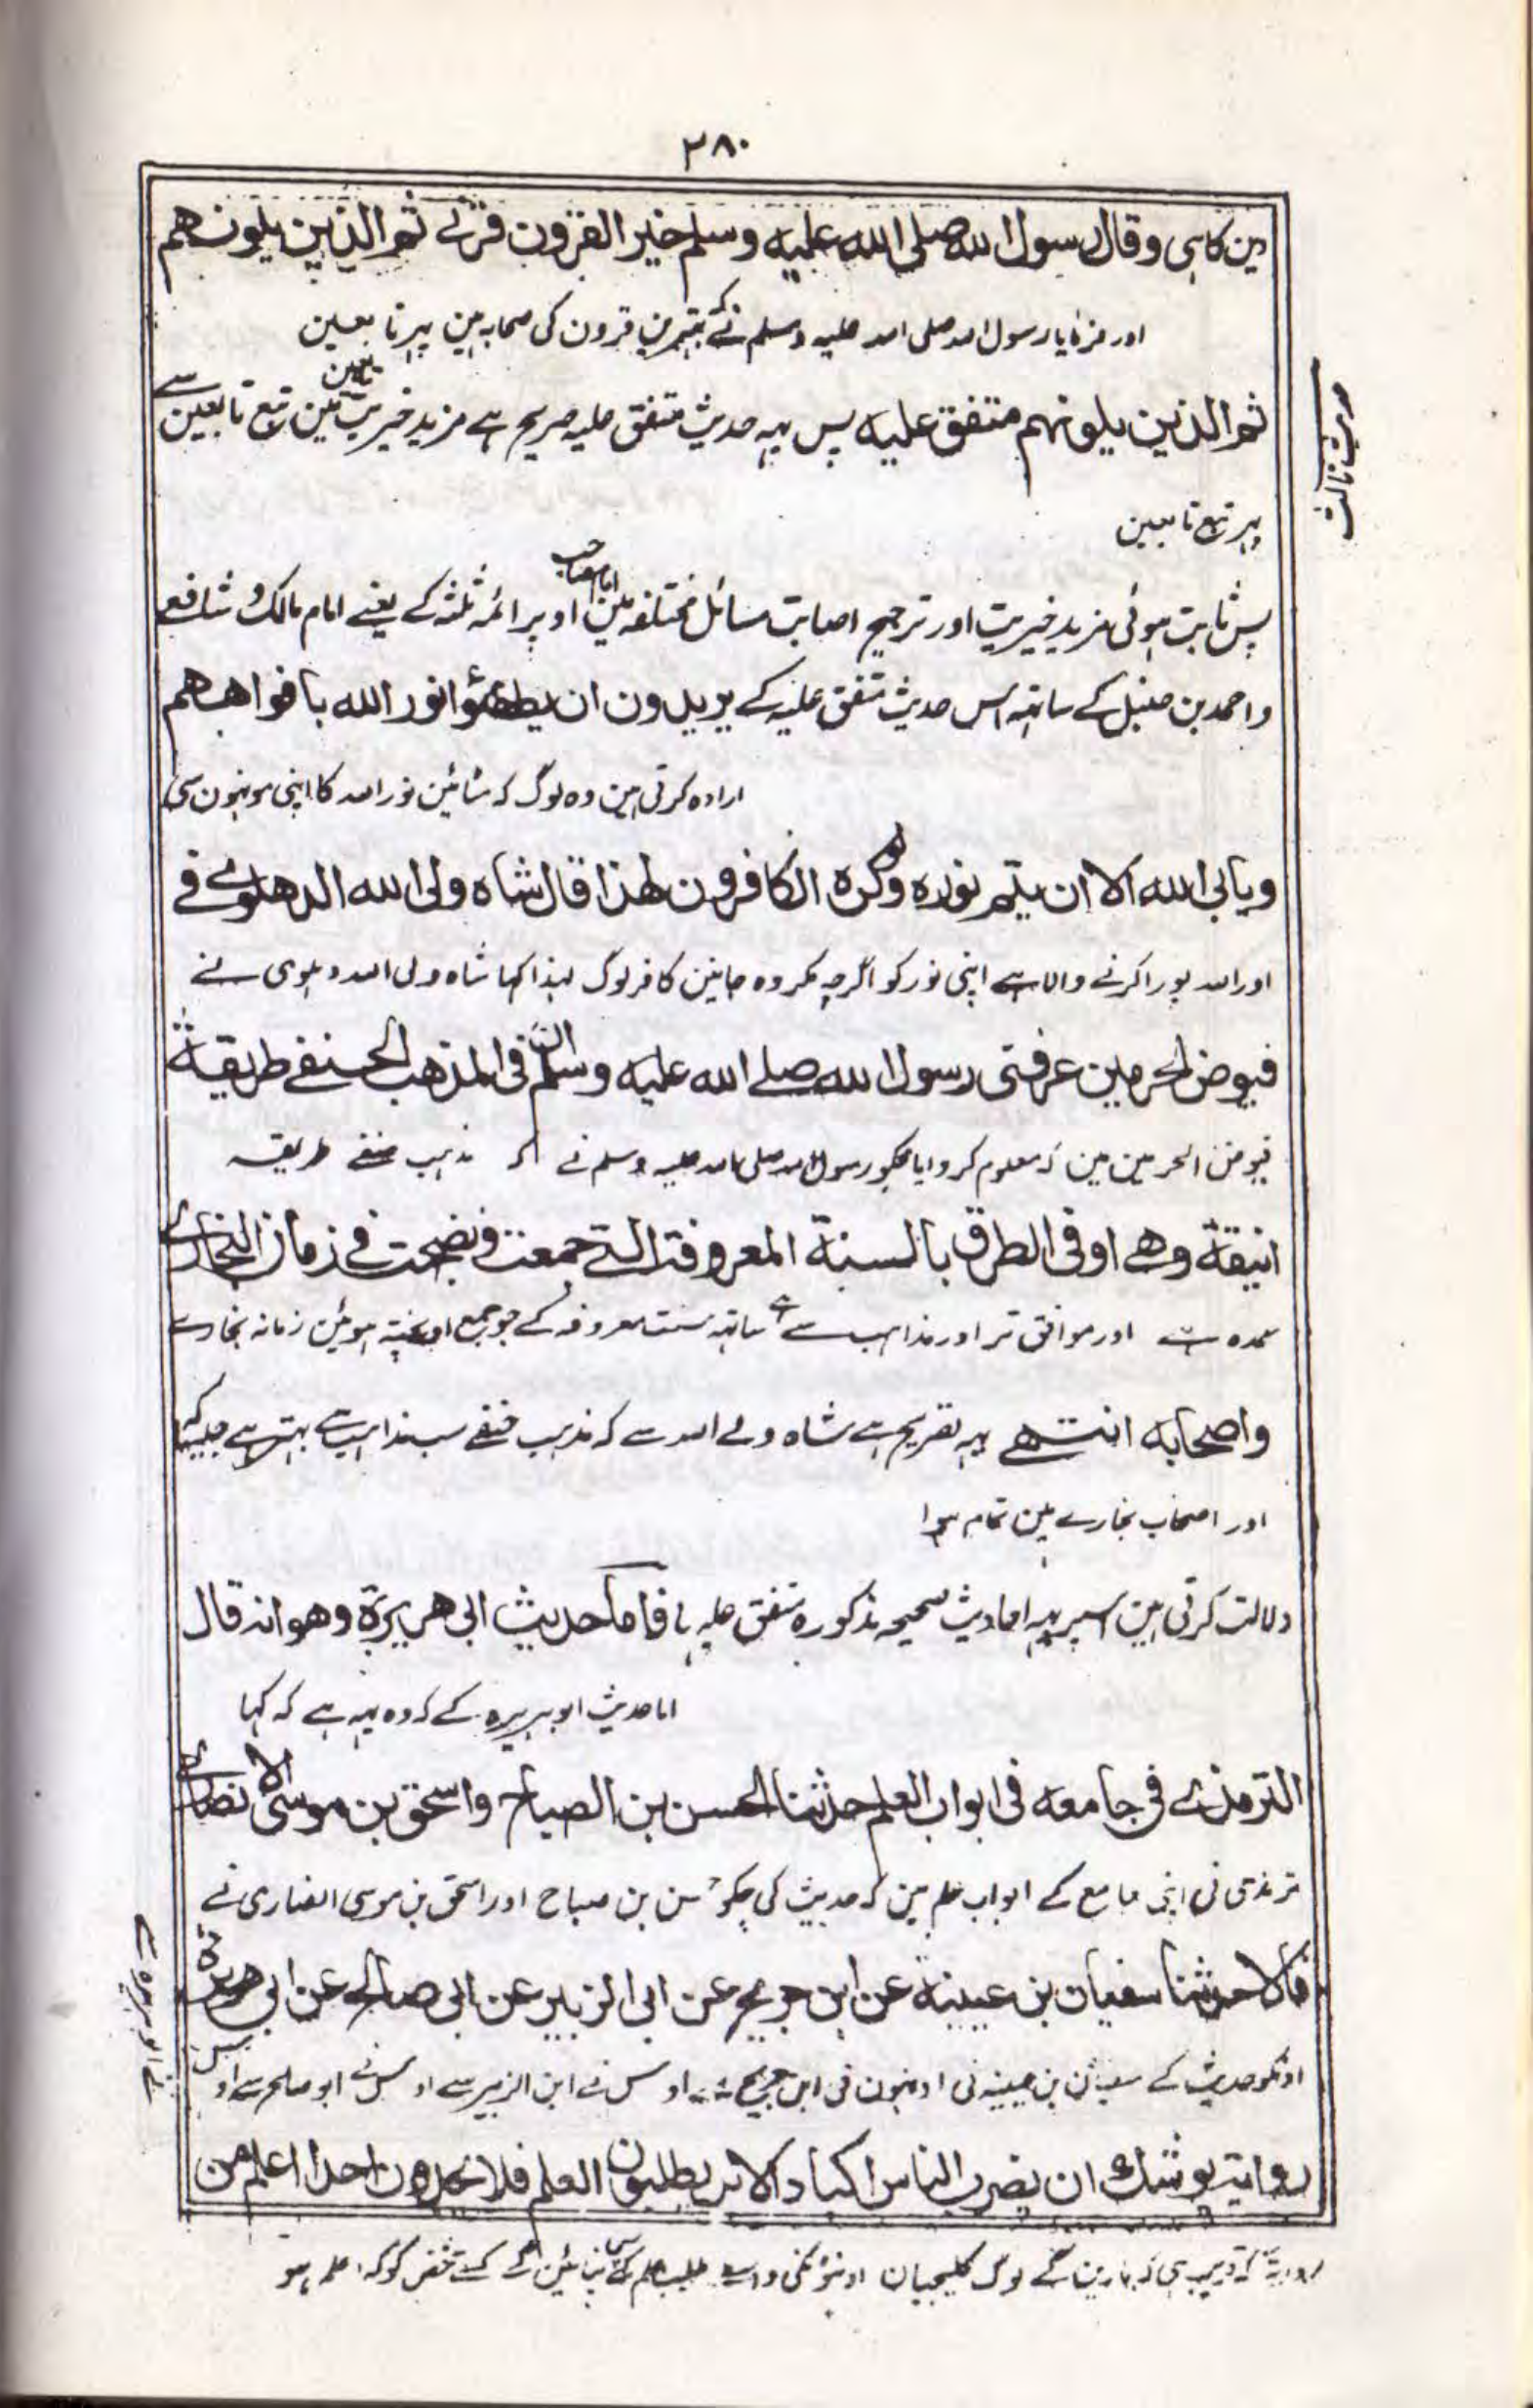 ۲۸۰
دین کا ہی وقال رسول الله صلی الله علیه وسلم خیر القرون قرنی ثم الذین یلونهم
اور فرمایا رسول اللہ صلی اللہ علیہ وسلم نے کہ بہترین قرون کی صحابہ ہین پہر تابعین
ثم الذین یلونهم متفق علیه پس یہہ حدیث متفق علیہ صریح ہے مزید خیریت تابعین مین تبع تابعین سے
پہر تبع تابعین
حدیث ثالث
پس ثابت ہوئی مزید خیریت اور ترجیح اصابت مسائل مختلفہ مین امام صاحب اوپر ائمہ ثلثہ کے یعنے امام مالک و شافعی
واحمد بن حنبل کے ساتہہ اس حدیث متفق علیہ کے یریدون ان یطفئوا نور الله بافواههم
ارادہ کرتی ہین وہ لوگ کہ مٹائین نور اللہ کا اپنی مونہون سی
ویابی الله الا ان یتم نوره ولو کره الکافرون لهذا قال شاه ولی الله الدهلوے فے
اور اللہ پورا کرنے والا ہے اپنی نور کو اگرچہ مکروہ جانین کافر لوگ لہذا کہا شاہ ولی اللہ دہلوی نے
فیوض الحرمین عرفنی رسول الله صلے الله علیه وسلم ان فی المذهب الحنفے طریقة
فیوض الحرمین مین کہ معلوم کروایا مجکو رسول اللہ صلی اللہ علیہ وسلم نے کہ مذہب حنفے طریقہ
انیقة وهے اوفق الطرق بالسنة المعروفة التے جمعت ونضجت فے زمان البخارے
عمدہ ہے اور موافق تر اور مذاہب سے ہے ساتہہ سنت معروفہ کے جو جمع اور پختہ ہوئین زمانہ بخارے
واصحابه انتهے یہہ تصریح ہے شاہ ولے اللہ سے کہ مذہب حنفے سب مذاہب سے بہتر ہے جیسا کہ
اور اصحاب بخارے مین تمام ہوا
دلالت کرتی ہین اسپر یہہ احادیث صحیحہ مذکورہ متفق علیہ با فاما حدیث ابی هریرة وهو انه قال
اما حدیث ابو ہریرہ کے کہ وہ یہہ ہے کہ کہا
الترمذے فی جامعه فی ابواب العلم حدثنا الحسن بن الصباح واسحق بن موسی الانصارے
ترمذی نی اپنی جامع کے ابواب علم مین کہ حدیث کی مجکو حسن بن صباح اور اسحق بن موسی انصاری نے
قالا حدثنا سفیان بن عیینة عن ابن جریج عن ابی الزبیر عن ابی صالح عن ابی هریرة
اونکو حدیث کے سفیان بن عیینہ نی اونہون نی ابن جریج سے اوس نے ابن الزبیر سے اوس نے ابو صالح سے اوس
نے ابو ہریرہ سے
روایة یوشك ان یضرب الناس اکباد الابل یطلبون العلم فلا یجدون احدا اعلم من
روایة کہ قریب ہی کہ مارینگے لوگ کلیجیان اونٹونکی واسطے طلب علم کے